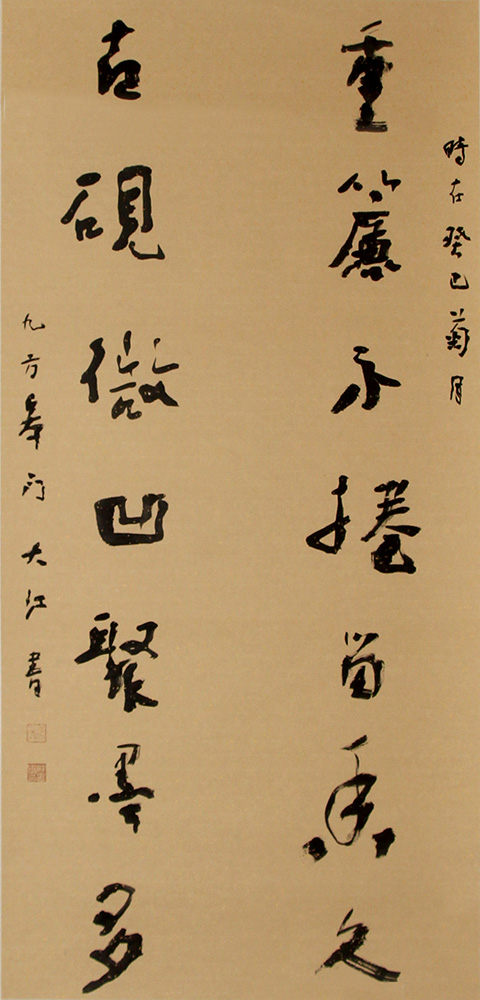 時在癸巳菊月
重簾不捲留香久
古硯微凹聚墨多
九方皋 大江書